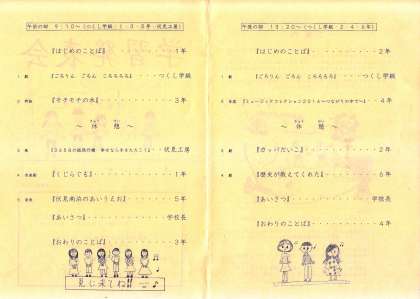 午前の部 9:10～(つくし学級・1・3・5年・伏見工房)
『はじめのことば』・・・・・・・・・・1年
1 劇 『ごろりん ごろん ころろろろ』・・・・つくし学級
2 『モチモチの木』・・・・・・・・・・3年
～ 休憩 ～
きゅう けい
・・・伏見工房
『くじらぐも』・・・・・・・・・・1年
『伏見南浜のあいうえお』・・・・・・5年
『あいさつ』・・・・・・・・・・学校長
『おわりのことば』・・・・・・・・3年
見に来てね!!
午後の部 13:20～(つくし学級・2・4・6年)
『はじめのことば』・・・・・・・・・・2年
1 劇 『ごろりん ごろん ころろろろ』・・・・つくし学級
・・・4年
～ 休憩 ～
きゅう けい
3 劇 『かっぱだいこ』・・・・・・・・・・2年
4 劇 『歴史が教えてくれた』・・・・・・6年
『あいさつ』・・・・・・・・・・学校長
『おわりのことば』・・・・・・・・4年